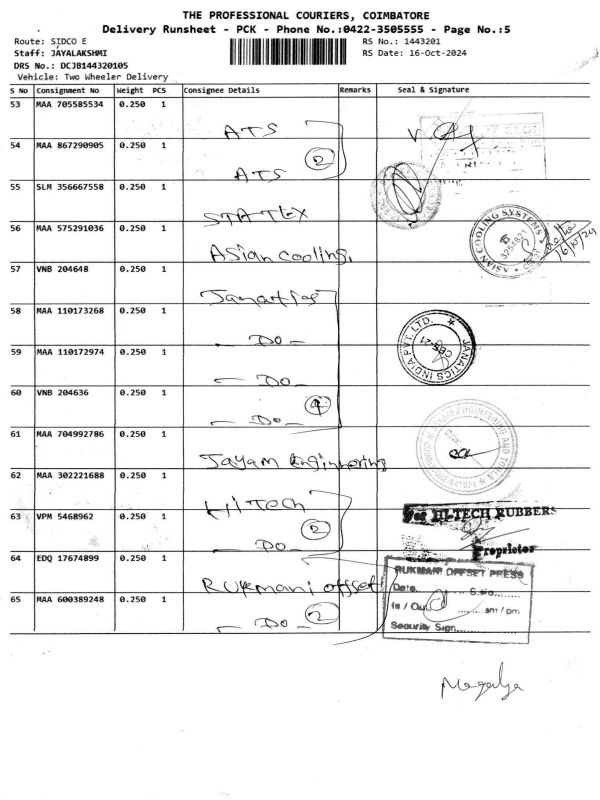 THE PROFESSIONAL COURIERS, COIMBATORE
Delivery Runsheet - PCK - Phone No.:0422-3505555 - Page No.:5
Route: SIDCO E
RS No.: 1443201
Staff: JAYALAKSHMI
RS Date: 16-Oct-2024
DRS No.: DCJB144320105
Vehicle: Two Wheeler Delivery
S No Consignment No Weight PCS Consignee Details Remarks Seal & Signature
53 MAA 705585534 0.250 1 ATS
54 MAA 867290905 0.250 1 ATS 2
55 SLM 356667558 0.250 1 STATEX
56 MAA 575291036 0.250 1 Asian cooling.
ASIAN COOLING SYSTEMS
16/10/24
57 VNB 204648 0.250 1
58 MAA 110173268 0.250 1 - Do -
JANATICS INDIA PVT. LTD.
CBS-21
59 MAA 110172974 0.250 1 - Do -
60 VNB 204636 0.250 1 - Do - 4
61 MAA 704992786 0.250 1 Jayam Enginnering
62 MAA 302221688 0.250 1 Hitech
63 VPM 5468962 0.250 1 - Do - 2
For HI-TECH RUBBERS
Proprietor
64 EDQ 17674899 0.250 1 Rukmani offset
65 MAA 600389248 0.250 1 - Do - 2
RUKMANI OFFSET PRESS
Date
In / Out am / pm
Security Sign